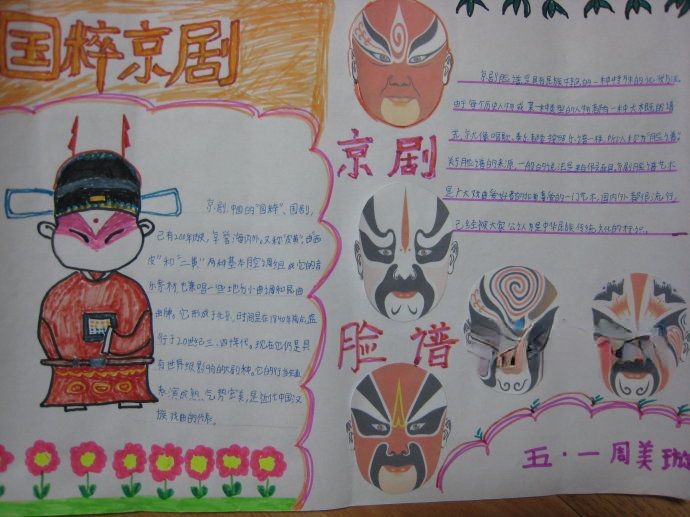 国粹京剧
京剧,中国的“国粹”、国剧,
已有200年历史,享誉海内外。又称“皮黄”,由“西
皮”和“二黄”两种基本腔调组成它的音
乐素材,也兼唱一些地方小曲调和昆曲
曲牌。它形成于北京,时间是在1840年前后,盛
行于20世纪三、四十年代。现在它仍是具
有世界级影响的大剧种。它的行当
表演成熟、气势宏美,是近代中国汉
族戏曲的代表。
京剧
脸谱
京剧脸谱是具有民族特色的一种特殊的化妆方法。
由于每个历史人物或某一种类型的人物都有一种大概的谱
式,就像唱歌、奏乐都要按照乐谱一样,所以称为“脸谱”。
关于脸谱的来源,一般的说法是来自假面具。京剧脸谱艺术
是广大戏曲爱好者的非常喜爱的一门艺术,国内外都很流行,
已经被大家公认为是中华民族传统文化的标识。
五·一周美璇